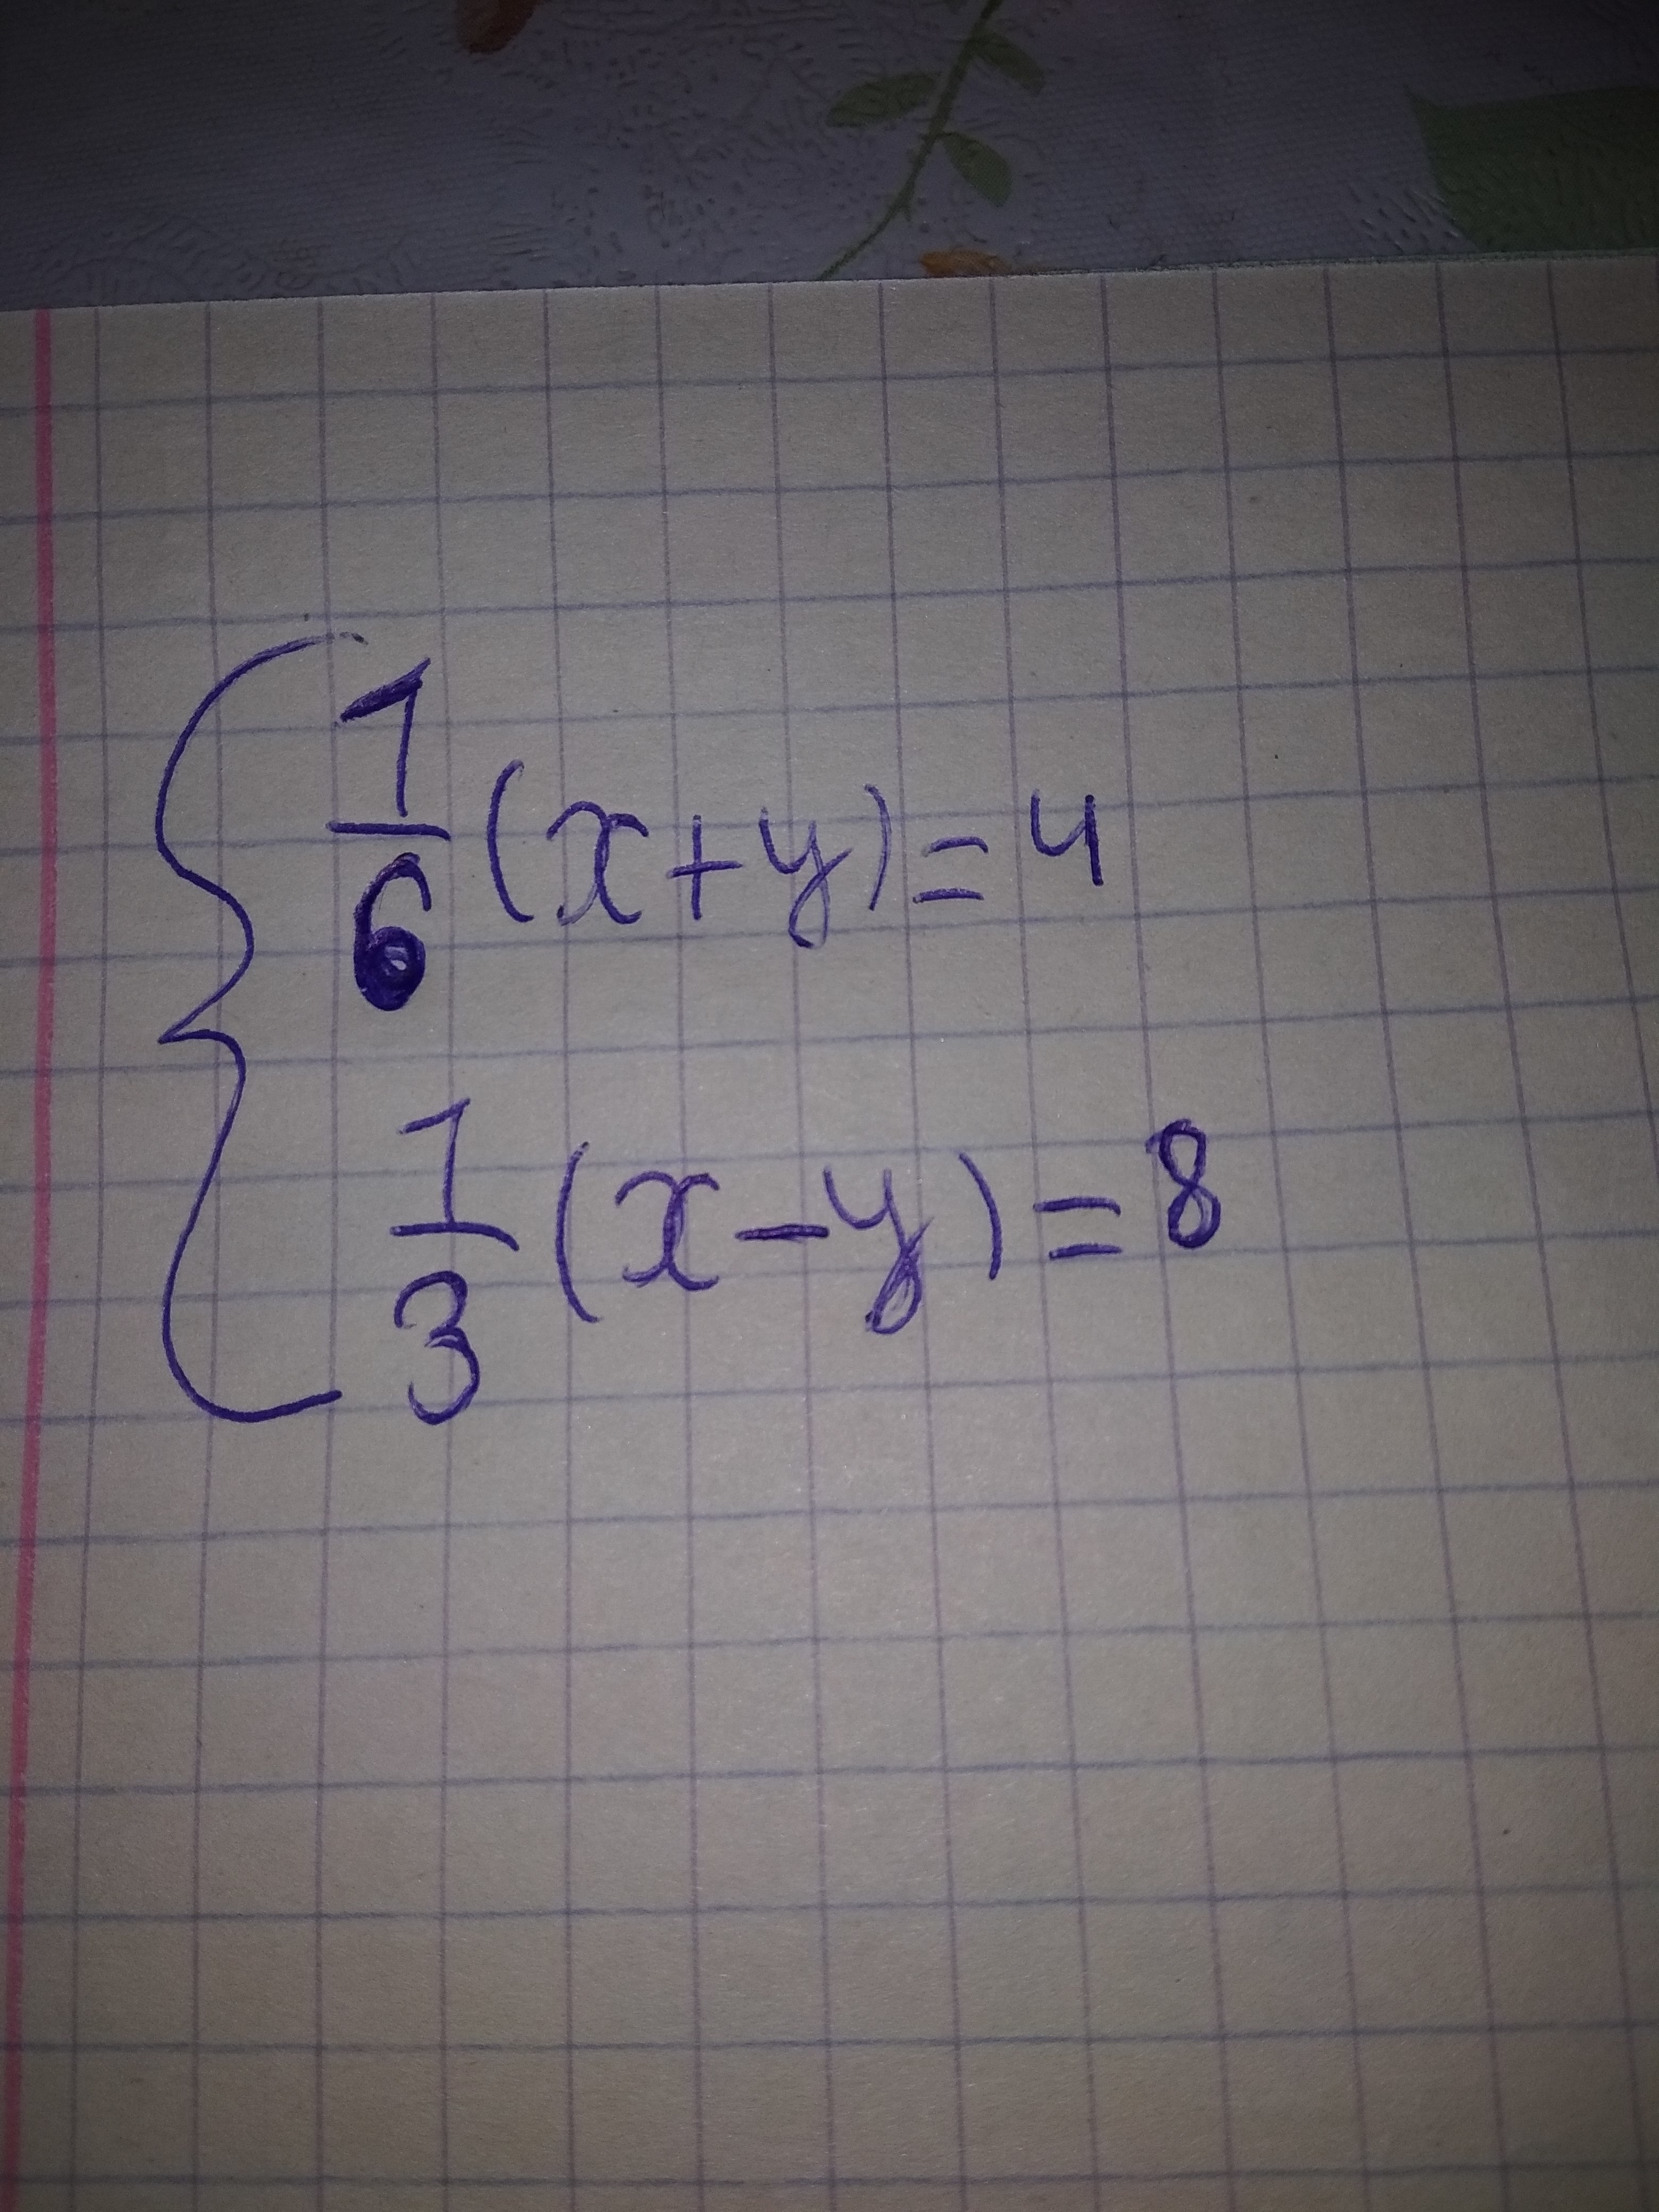 1/6 (x+y)=4
1/3 (x-y)=8